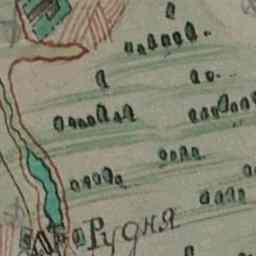 Рудня